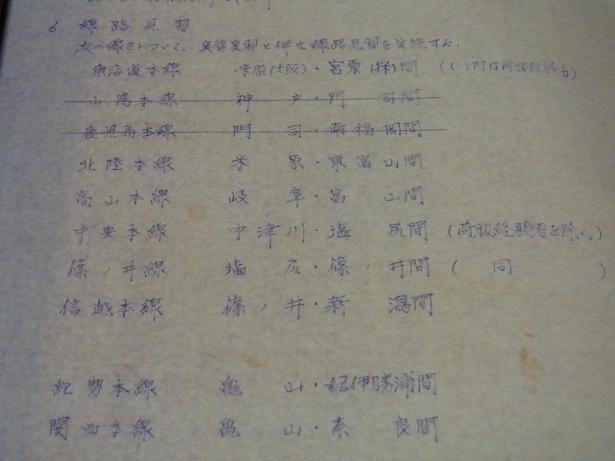 6 線路見習
次の線について、実務実習と併せ線路見習を実施する。
東海道本線 米原(大阪)・宮原(操)間 (( )内は荷扱経験者)
山陽本線 神戸・門司間
鹿児島本線 門司・南福岡間
北陸本線 米原・東富山間
高山本線 岐阜・富山間
中央本線 中津川・塩尻間 (荷扱経験者を除く)
篠ノ井線 塩尻・篠ノ井間 ( 同 )
信越本線 篠ノ井・新潟間
紀勢本線 亀山・紀伊勝浦間
関西本線 亀山・奈良間